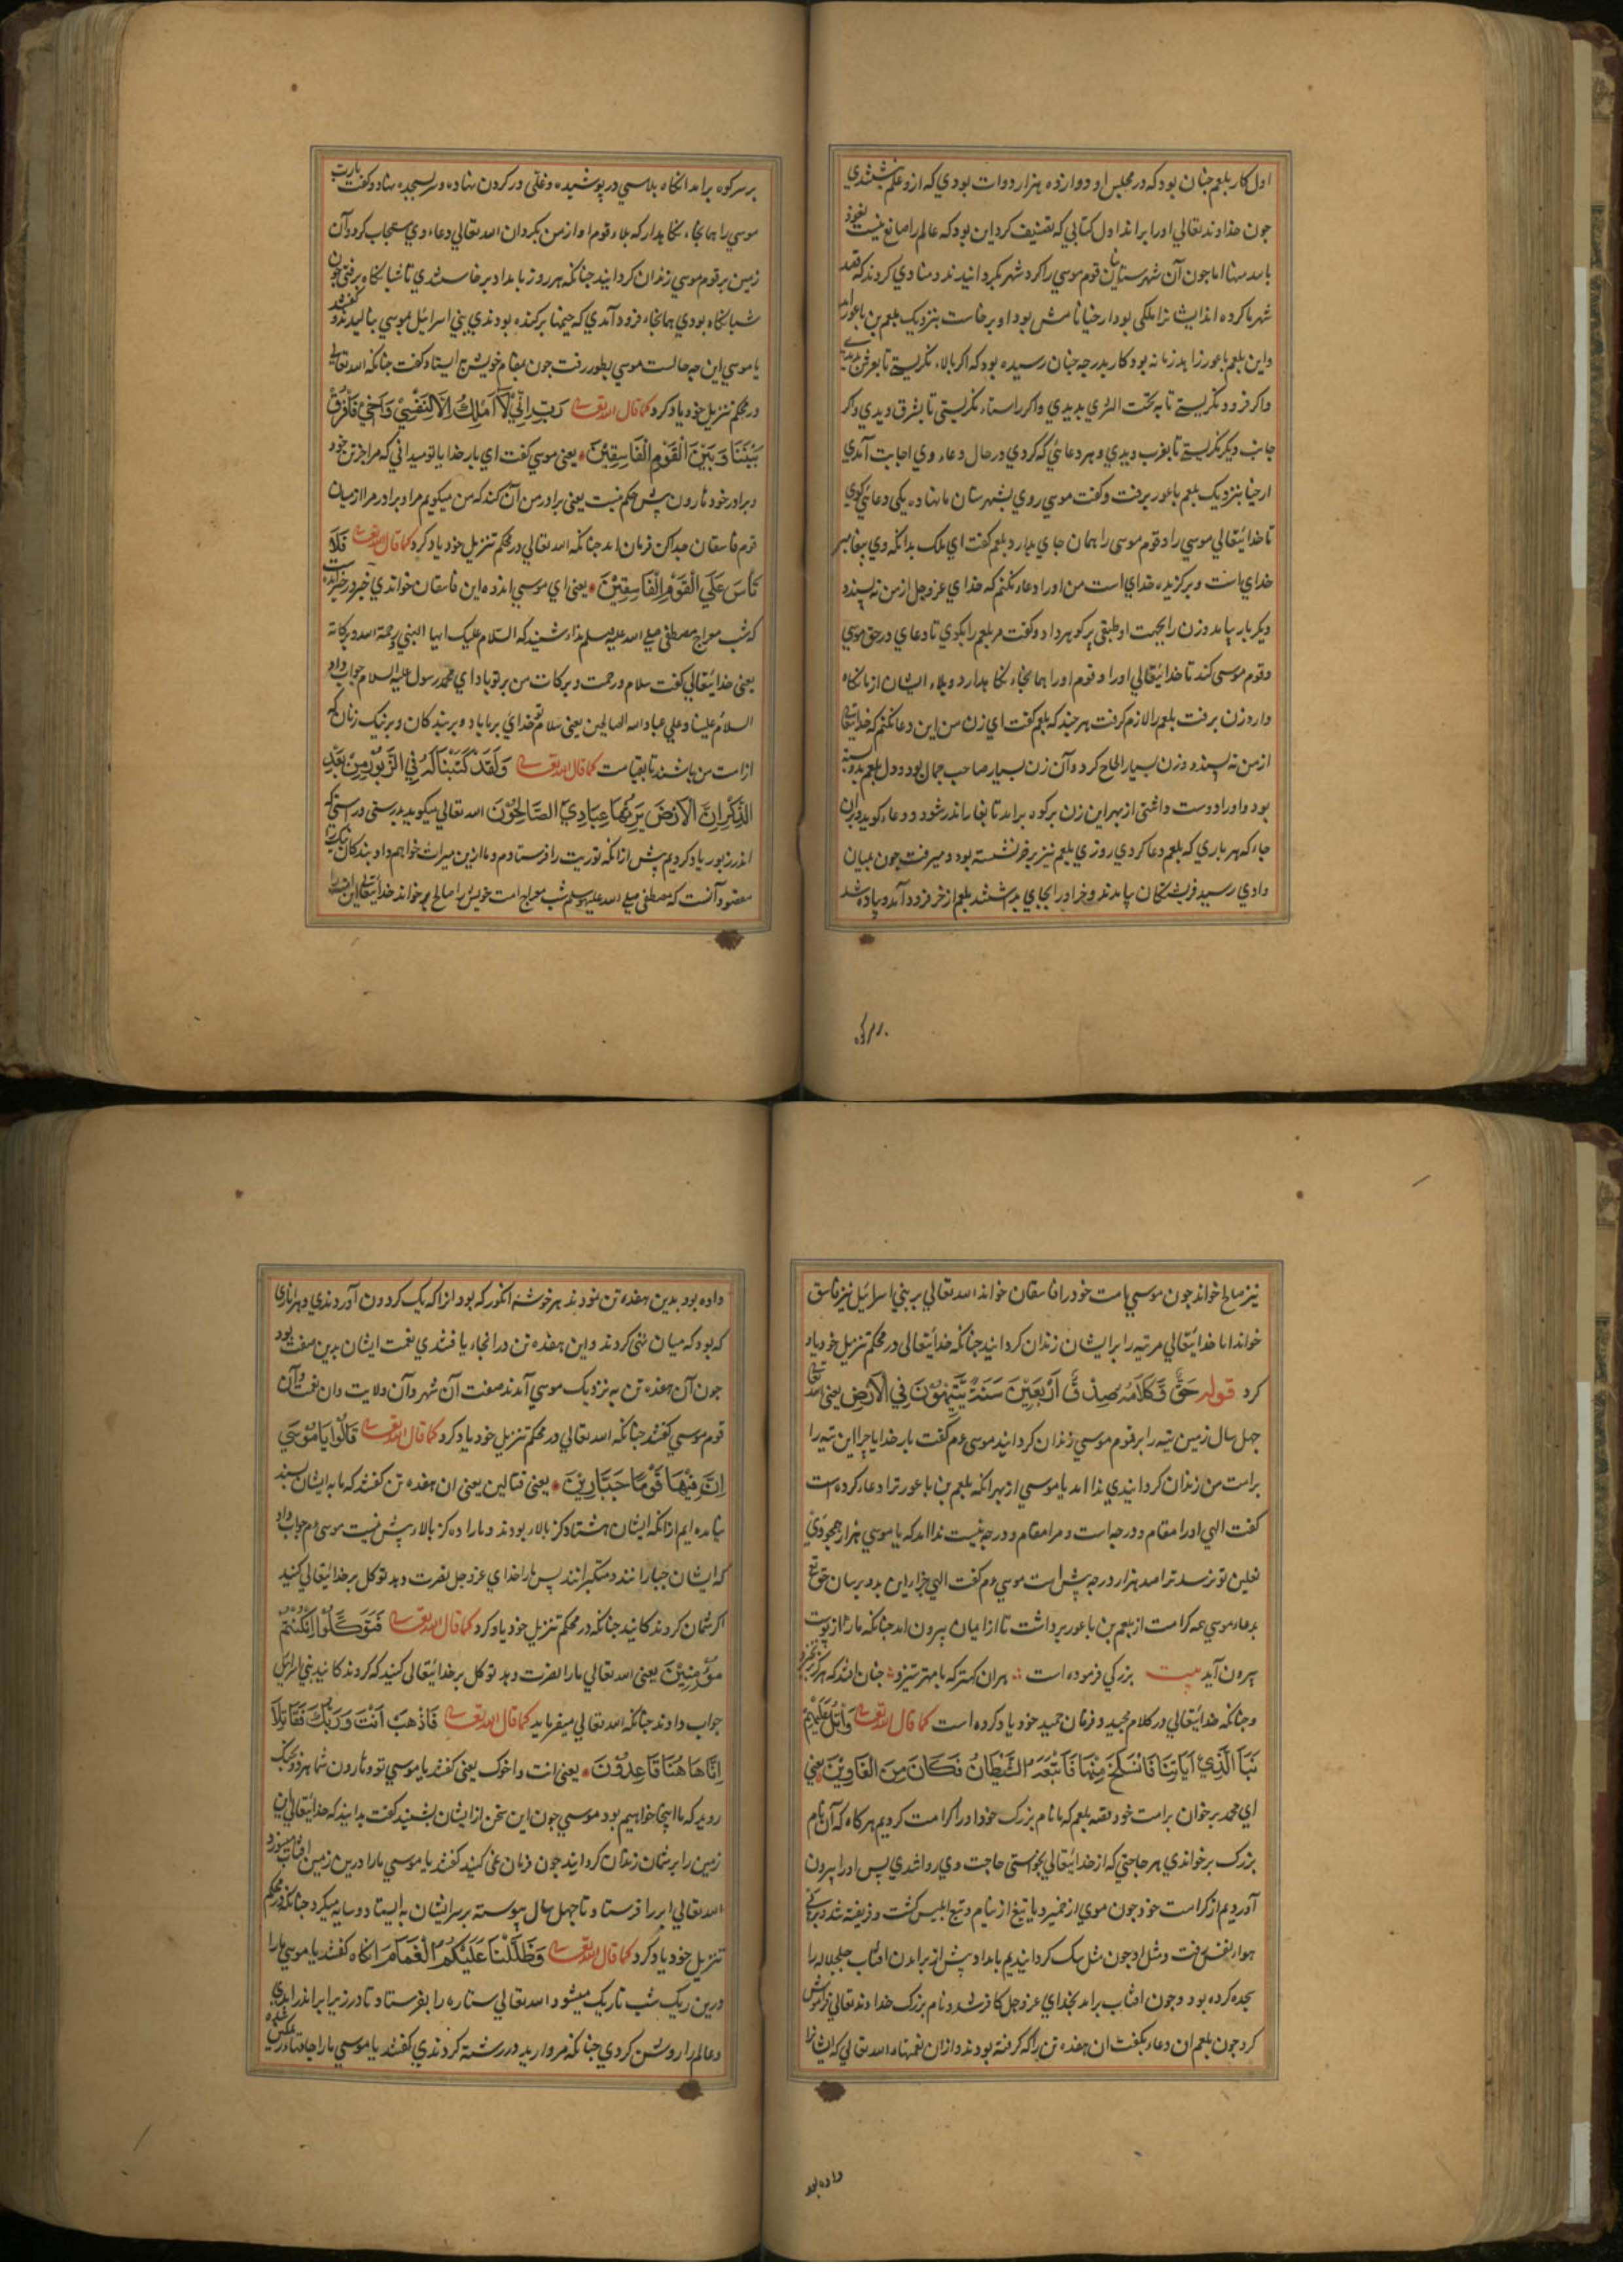 اول کار بلعم چنان بود که در مجلس او دوازده هزار دوات بودی که ازو علم نبشتندی
چون خداوند تعالی اورا براند اول کتابی که تصنیف کرد این بود که عالم را صانع نیست نعوذ
بالله منها اما چون آن شهرستان قوم موسی را کرد شهر بگردانیدند و منادی کردند که قصد
شهر ما کرده اند ایشانرا ملکی بود ارخیا نامش بود او برخاست بنزدیک بلعم بن باعور آمد
و این بلعم باعور زاهد زمانه بود و کار بدرجه چنان رسیده بود که اگر بالا نگریستی تا بعرش بدیدی
و اگر فرود نگریستی تا به تحت الثری بدیدی و اگر راستا نگریستی تا بشرق دیدی و اگر
جانب دیگر نگریستی تا بغرب دیدی و هر دعائی که کردی در حال دعاء وی اجابت آمدی
ارخیا بنزدیک بلعم باعور برفت و گفت موسی روی بشهرستان ما نهاده یکی دعائی گوی
تا خدایتعالی موسی را و قوم موسی را همان جای بدارد بلعم گفت ای ملک بدانکه وی پیغامبر
خدای است و برگزیده خدای است من اورا دعاء نکنم که خدای عز و جل از من نه پسندد
دیگر بار بیامد و زن را بجست او طبقی پر گوهر داد و گفت مر بلعم را بگوی تا دعای در حق موسی
و قوم موسی کند تا خدایتعالی اورا و قوم اورا همانجاء نگاه بدارد و بلاء ایشان از ما نگاه
دارد زن برفت بلعم را لازم گرفت هر چند که بلعم گفت ای زن من این دعا نکنم که خدایتعالی
از من نه پسندد و زن بسیار الحاح کرد و آن زن بسیار صاحب جمال بود و دل بلعم بدو بسته
بود و او را دوست داشتی از بهر این زن بر کوه برآمد تا بغار اندر شود و دعاء گوید و بران
جاء که هر باری که بلعم دعا کردی روزی بلعم نیز بر خر نشسته بود و میرفت چون بمیان
وادی رسید فریشتگان بیامدند و خر اورا بجای بداشتند بلعم از خر فرود آمد و پیاده شد
بر سر کوه برآمد انگاه پلاسی در پوشیده و غلی در گردن نهاده و سر بسجده نهاد و گفت یا رب
موسی را همانجاء نگاه بدار که بلاء قوم او از من بگردان الله تعالی دعاء وی مستجاب کرد و آن
زمین بر قوم موسی زندان گردانید چنانکه هر روز بامداد برخاستندی تا شبانگاه برفتی چون
شبانگاه بودی همانجاء فرود آمدی که خیمها برکنده بودندی بنی اسرائیل بموسی بنالیدند و گفتند
یا موسی این چه حالست موسی بطور رفت چون بمقام خویش ایستاد گفت چنانکه الله تعالی
در محکم تنزیل خود یاد کرد کما قال الله تعالی رَبِّ اِنِّي لَا اَمْلِكُ اِلَّا لِنَفْسِيْ وَاَخِيْ فَافْرُقْ
بَيْنَنَا وَبَيْنَ الْقَوْمِ الْفَاسِقِيْنَ یعنی موسی گفت ای بار خدایا تو میدانی که مرا جز تن خود
و برادر خود هارون پیش حکم نیست یعنی برادر من آن کند که من میگویم مرا و برادر مرا از میان
قوم فاسقان جدا کن فرمان آمد چنانکه الله تعالی در محکم تنزیل خود یاد کرد کما قال الله تعالی فَلَا
تَأْسَ عَلَى الْقَوْمِ الْفَاسِقِيْنَ یعنی ای موسی اندوه این فاسقان خواندی خبر در خبر است
که شب معراج مصطفی صلی الله علیه وسلم نداء شنید که السلام علیک ایها النبی و رحمة الله و برکاته
یعنی خدایتعالی گفت سلام و رحمت و برکات من بر تو باد ای محمد رسول علیه السلام جواب داد
السلام علینا و علی عباد الله الصالحین یعنی سلام تو خدای بر ما باد و بر بندگان و بر نیک زنان که
از امت من باشند تا بقیامت کما قال الله تعالی وَلَقَدْ كَتَبْنَا لَهُ فِي الزَّبُوْرِ مِنْ بَعْدِ
الذِّكْرِ اِنَّ الْاَرْضَ يَرِثُهَا عِبَادِيَ الصَّالِحُوْنَ الله تعالی میگوید بدرستی و راستی که
اندر زبور یاد کردیم پیش ازانکه توریت را فرستادم و ما ازین میراث خواهم داد بندگان نیک را
مقصود آنست که مصطفی صلی الله علیه وسلم شب معراج امت خویش را صالح خواند خدایتعالی این امت را
نیز صالح خواند چون موسی امت خود را فاسقان خواند الله تعالی بر بنی اسرائیل نیز فاسق
خواند اما خدایتعالی مر تیه را بر ایشان زندان گردانید چنانکه خدایتعالی در محکم تنزیل خود یاد
کرد قوله حَقٌّ وَكَلَامُهُ صِدْقٌ اَرْبَعِيْنَ سَنَةً يَتِيْهُوْنَ فِي الْاَرْضِ یعنی الله تعالی
چهل سال زمین تیه را بر قوم موسی زندان گردانید موسی ع م گفت بار خدایا چرا این تیه را
بر امت من زندان گردانیدی ندا آمد یا موسی از بهر آنکه بلعم بن باعور ترا دعاء کرده است
گفت الهی اورا مقام و درجه است و مرا مقام و درجه نیست ندا آمد که یا موسی هزار همچو وی
نعلین تو نرسد ترا صد هزار درجه پیش است موسی ع م گفت الهی جزاء این بدو برسان حق تع
بدعاء موسی ع م کرامت از بلعم بن باعور برداشت تا از ایمان بیرون آمد چنانکه مار از پوست
بیرون آید بیت بزرگی فرموده است هران کهتر که با مهتر ستیزد چنان افتد که هرگز برنخیزد
و چنانکه خدایتعالی در کلام مجید و فرقان حمید خود یاد کرده است کما قال الله تعالی وَاتْلُ عَلَيْهِمْ
نَبَأَ الَّذِيْ اٰيَاتِنَا فَانْسَلَخَ مِنْهَا فَاَتْبَعَهُ الشَّيْطَانُ فَكَانَ مِنَ الْغَاوِيْنَ یعنی
ای محمد بر خوان بر امت خود قصه بلعم که ما نام بزرگ خود اورا کرامت کردیم هر گاه که آن نام
بزرگ بر خواندی هر حاجتی که از خدایتعالی بخواستی حاجت وی روا شدی پس اورا بیرون
آوردیم از کرامت خود چون موی از خمیر و یا تیغ از نیام و تبع ابلیس گشت و فریفته شد و بر پی
هوا نفس رفت و مثل او چون مثل سگ گردانیدیم بامداد پیش از برآمدن آفتاب جل جلاله را
سجده کرده بود و چون آفتاب برآمد بخدای عز و جل کافر شد و نام بزرگ خداوند تعالی فراموش
کرد چون بلعم آن دعاء بگفت آن هفده تن را که گرفته بودند و ازان نعمتهاء الله تعالی که ایشانرا
داده بود بدین هفده تن نمودند هر خوشه انگور که بود ازا که یک گردون آوردندی و هر اناری
که بود که میان تهی کردند و این هفده تن در انجاء یافتندی نعمت ایشان بدین صفت بود
چون آن هفده تن به نزدیک موسی آمدند صفت آن شهر و آن ولایت و آن نعمت و آن
قوم موسی گفتند چنانکه الله تعالی در محکم تنزیل خود یاد کرد کما قال الله تعالی قَالُوْا يَا مُوْسَى
اِنَّ فِيْهَا قَوْمًا جَبَّارِيْنَ یعنی قتالین یعنی آن هفده تن گفتند که ما به ایشان بسند
نیامده ایم ازانکه ایشان هشتاد گز بالا بودند و مارا ده گز بالا پیش نیست موسی ع م جواب داد
که ایشان جبارانند و متکبرانند پس مارا خدای عز و جل نصرت دهد توکل بر خدایتعالی کنید
اگر شمان گروندگانید چنانکه در محکم تنزیل خود یاد کرد کما قال الله تعالی فَتَوَكَّلُوْا اِنْ كُنْتُمْ
مُؤْمِنِيْنَ یعنی الله تعالی مارا نصرت دهد توکل بر خدایتعالی کنید که گروندگانید بنی اسرائیل
جواب دادند چنانکه الله تعالی میفرماید کما قال الله تعالی فَاذْهَبْ اَنْتَ وَرَبُّكَ فَقَاتِلَا
اِنَّا هَاهُنَا قَاعِدُوْنَ یعنی انت و اخوک یعنی گفتند یا موسی تو و هارون شما هر دو بجنگ
روید که ما اینجا خواهیم بود موسی چون این سخن از ایشان بشنید گفت بدانید که خدایتعالی این
زمین را بر شمان زندان گردانید چون فرمان نمی کنید گفتند یا موسی مارا درین زمین آفتاب میسوزد
الله تعالی ابر را فرستاد تا چهل سال پیوسته بر سر ایشان به ایستاد و سایه میکرد چنانکه در محکم
تنزیل خود یاد کرد کما قال الله تعالی وَظَلَّلْنَا عَلَيْكُمُ الْغَمَامَ انگاه گفتند یا موسی مارا
درین ریک شب تاریک میشود الله تعالی ستاره را بفرستاد تا در زیر ابر اندر آمدی
و عالم را روشن کردی چنانکه مروارید در رشته کردندی گفتند یا موسی مارا جامهاء
بر سر کوه
داده بود